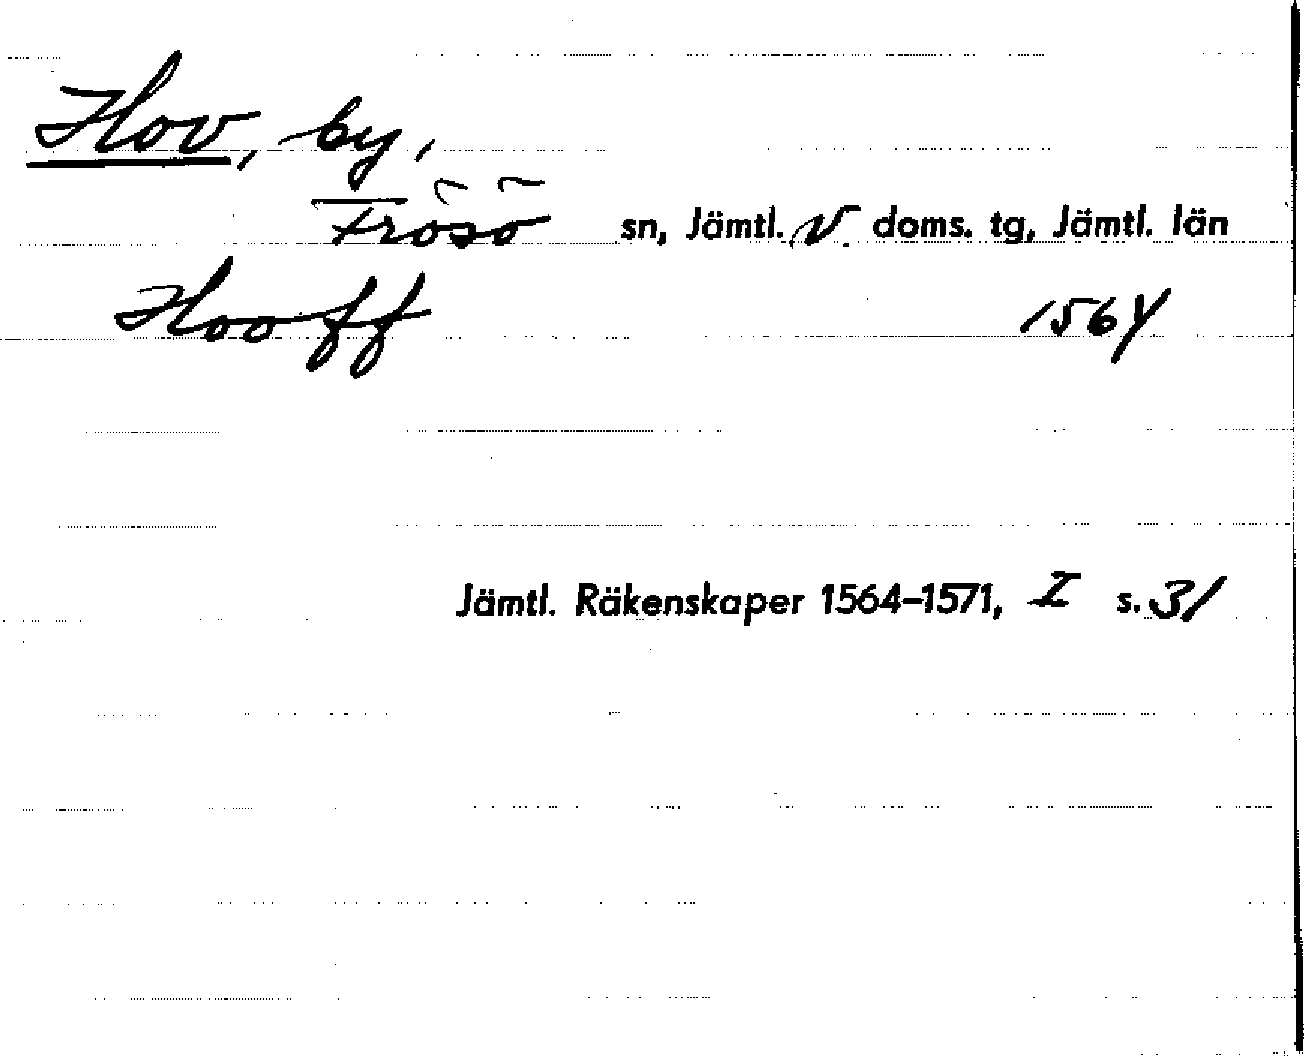 Hov, by,
Frösö sn, Jämtl. V. doms. tg, Jämtl. län
Hooff 1564
Jämtl. Räkenskaper 1564-1571, I s. 31